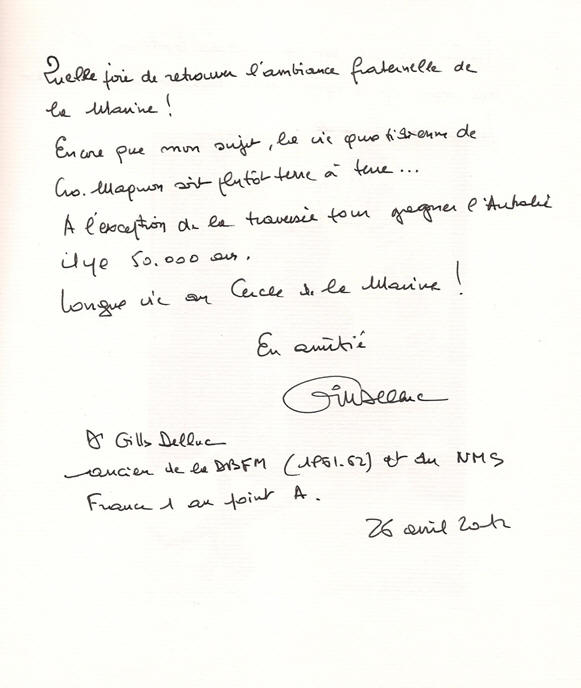 Quelle joie de retrouver l'ambiance fraternelle de
la Marine !
Encore que mon sujet, la vie quotidienne de
Cro. Magnon soit plutôt terre à terre...
A l'exception de la traversée pour gagner l'Australie
il y a 50.000 ans.
Longue vie au Cercle de la Marine !
En amitié
Gilles Delluc
Dr Gilles Delluc
ancien de la DBFM (1961.62) et du NMS
France 1 au point A.
26 avril 2012